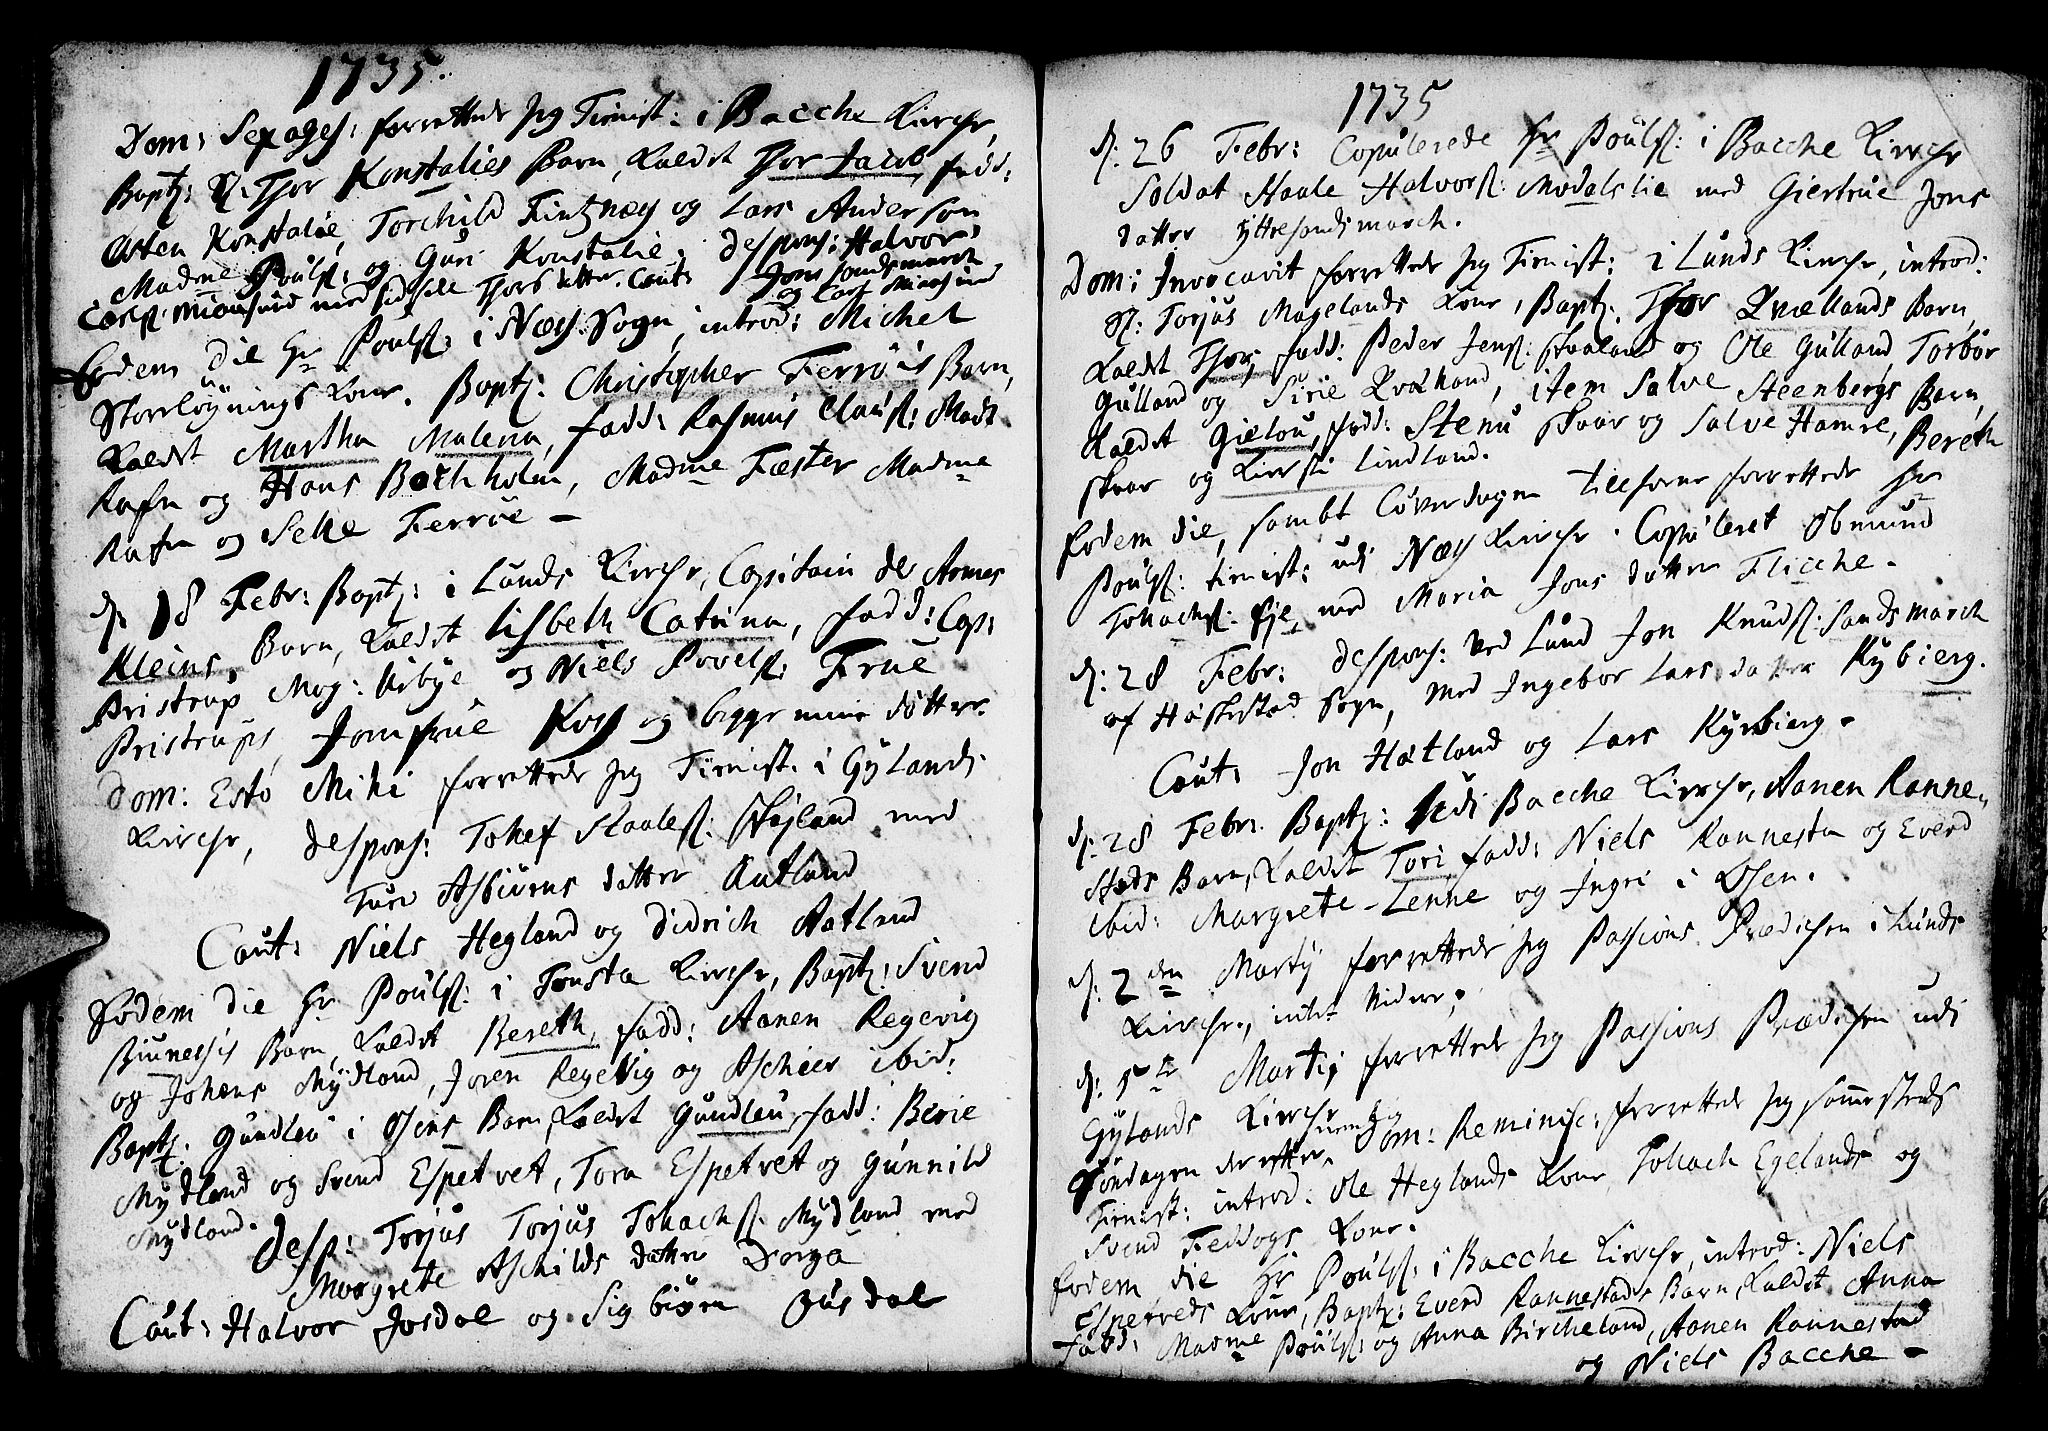 1735.
Dom: Sexages: forrettede jeg Tienist: i Bacche Kirche,
Bapt: Thor Konstalies Barn, kaldet Thor Jacob, fadd:
Osten Konstalie, Torchild Fintznæs og Lars Anderson
Madme Poulss: og Guri Konstalie. Despons: Halvor
Carlss: Miausund med Sidsele Thors datter. Caut: Jens Sandsmarch
og Carl Miaasund
Eodem die Hr Poulss: i Næs Sogn, introd: Michel
Storløgnings Kone. Bapt: Christopher Ferrøis Barn,
kaldet Martha Malena, fadd: Rasmus Clauss: Mads
Rafn og Hans Bochholm, Madme Fæster Madme
Rafn og Selle Ferrøe –
d: 18 Febr: Bapt: i Lunds Kirche, Capitain de Armes
Kleins Barn, kaldet Lisbeth Catrina, fadd: Cap:
Pristrup Mog: Urbye og Niels Povelss: Frue
Pristrups, Jomfrue Koss og begge mine døttre.
Dom: Esto Mihi forrettede jeg Tienist: i Gylands
Kirche, despons: Tohef Staaless: Skojland med
Turi Asbiørns datter Aatland
Caut: Niels Hegland og Didrich Aatland
Eodem die Hr Poulss: i Tonsta Kirche, Bapt: Svend
Biunessis Barn, kaldet Bereth, fadd: Aanen Regevig
og Johans Mydland, Joren Regevig og Ascheer ibid:
Bapt: Gundleu i Osens Barn, kaldet Gundleu, fadd: Berie
Mydland og Svend Espetvet, Tora Espetvet og Gunnild
Mydland. Desp: Torjus Torjus Tohachss. Mydland med
Margrete Aschilds datter Dorga
Caut: Halvor Josdal og Sigbiørn Ousdal
1735
d: 26 Febr: Copulerede Hr Poulss: i Bacche Kirche
Soldat Staale Halvorss: Modalslie med Giertrue Jons
datter Yttresandsmarch.
Dom: Invocavit forrettede jeg Tienist: i Lunds Kirche, introd:
Torjus Magelands Kone, Bapt: Thor Qvællands Barn,
kaldet Thor, fadd: Peder Jenss: Skaaland og Ole Gulland, Torbor
Gulland og Sirie Qvælland, item Salve Steenbergs Barn,
kaldet Gielou, fadd: Stenu Skaar og Salve Hamre, Bereth
Skaar og Kirsti Lindland.
Eodem die, sambt Løverdagen tilforne forrettede Hr
Poulss: tienist: udi Næs Kirche. Copuleret Obmund
Tohachss. Eje, med Maria Jons datter Flicche.
d: 28 Febr: Despons: ved Lund Jon Knudss: Sandsmarch
af Høskestad Sogn, med Ingebor Lars datter Kybierg.
Caut: Jon Hætland og Lars Kyrbierg.
d: 28 Febr: Bapt: udi Bacche Kirche, Aanen Ranne-
stads Barn, kaldet Tori, fadd: Niels Rannesta og Everd
ibid: Margrete Lenne og Ingri i Osen.
d: 2den Martij forrettede jeg Passions Prædichen i Lunds
Kirche, intet videre.
d: 5te Martij forrettede jeg Passions Prædichen udi
Gylands Kirche
Søndagen derefter, nemlig Dom: Reminisc: forrettede jeg sammesteds
Tienist: introd: Ole Heglands Kone, Tohach Egelands og
Svend Feddogs Kone.
Eodem die Hr Poulss: i Bacche Kirche, introd: Niels
Espetveds Kone, Bapt: Everd Rannestads Barn, kaldet Anna
fadd: Madme Poulss: og Anna Bircheland, Aanen Rannestad
og Niels Bacche –